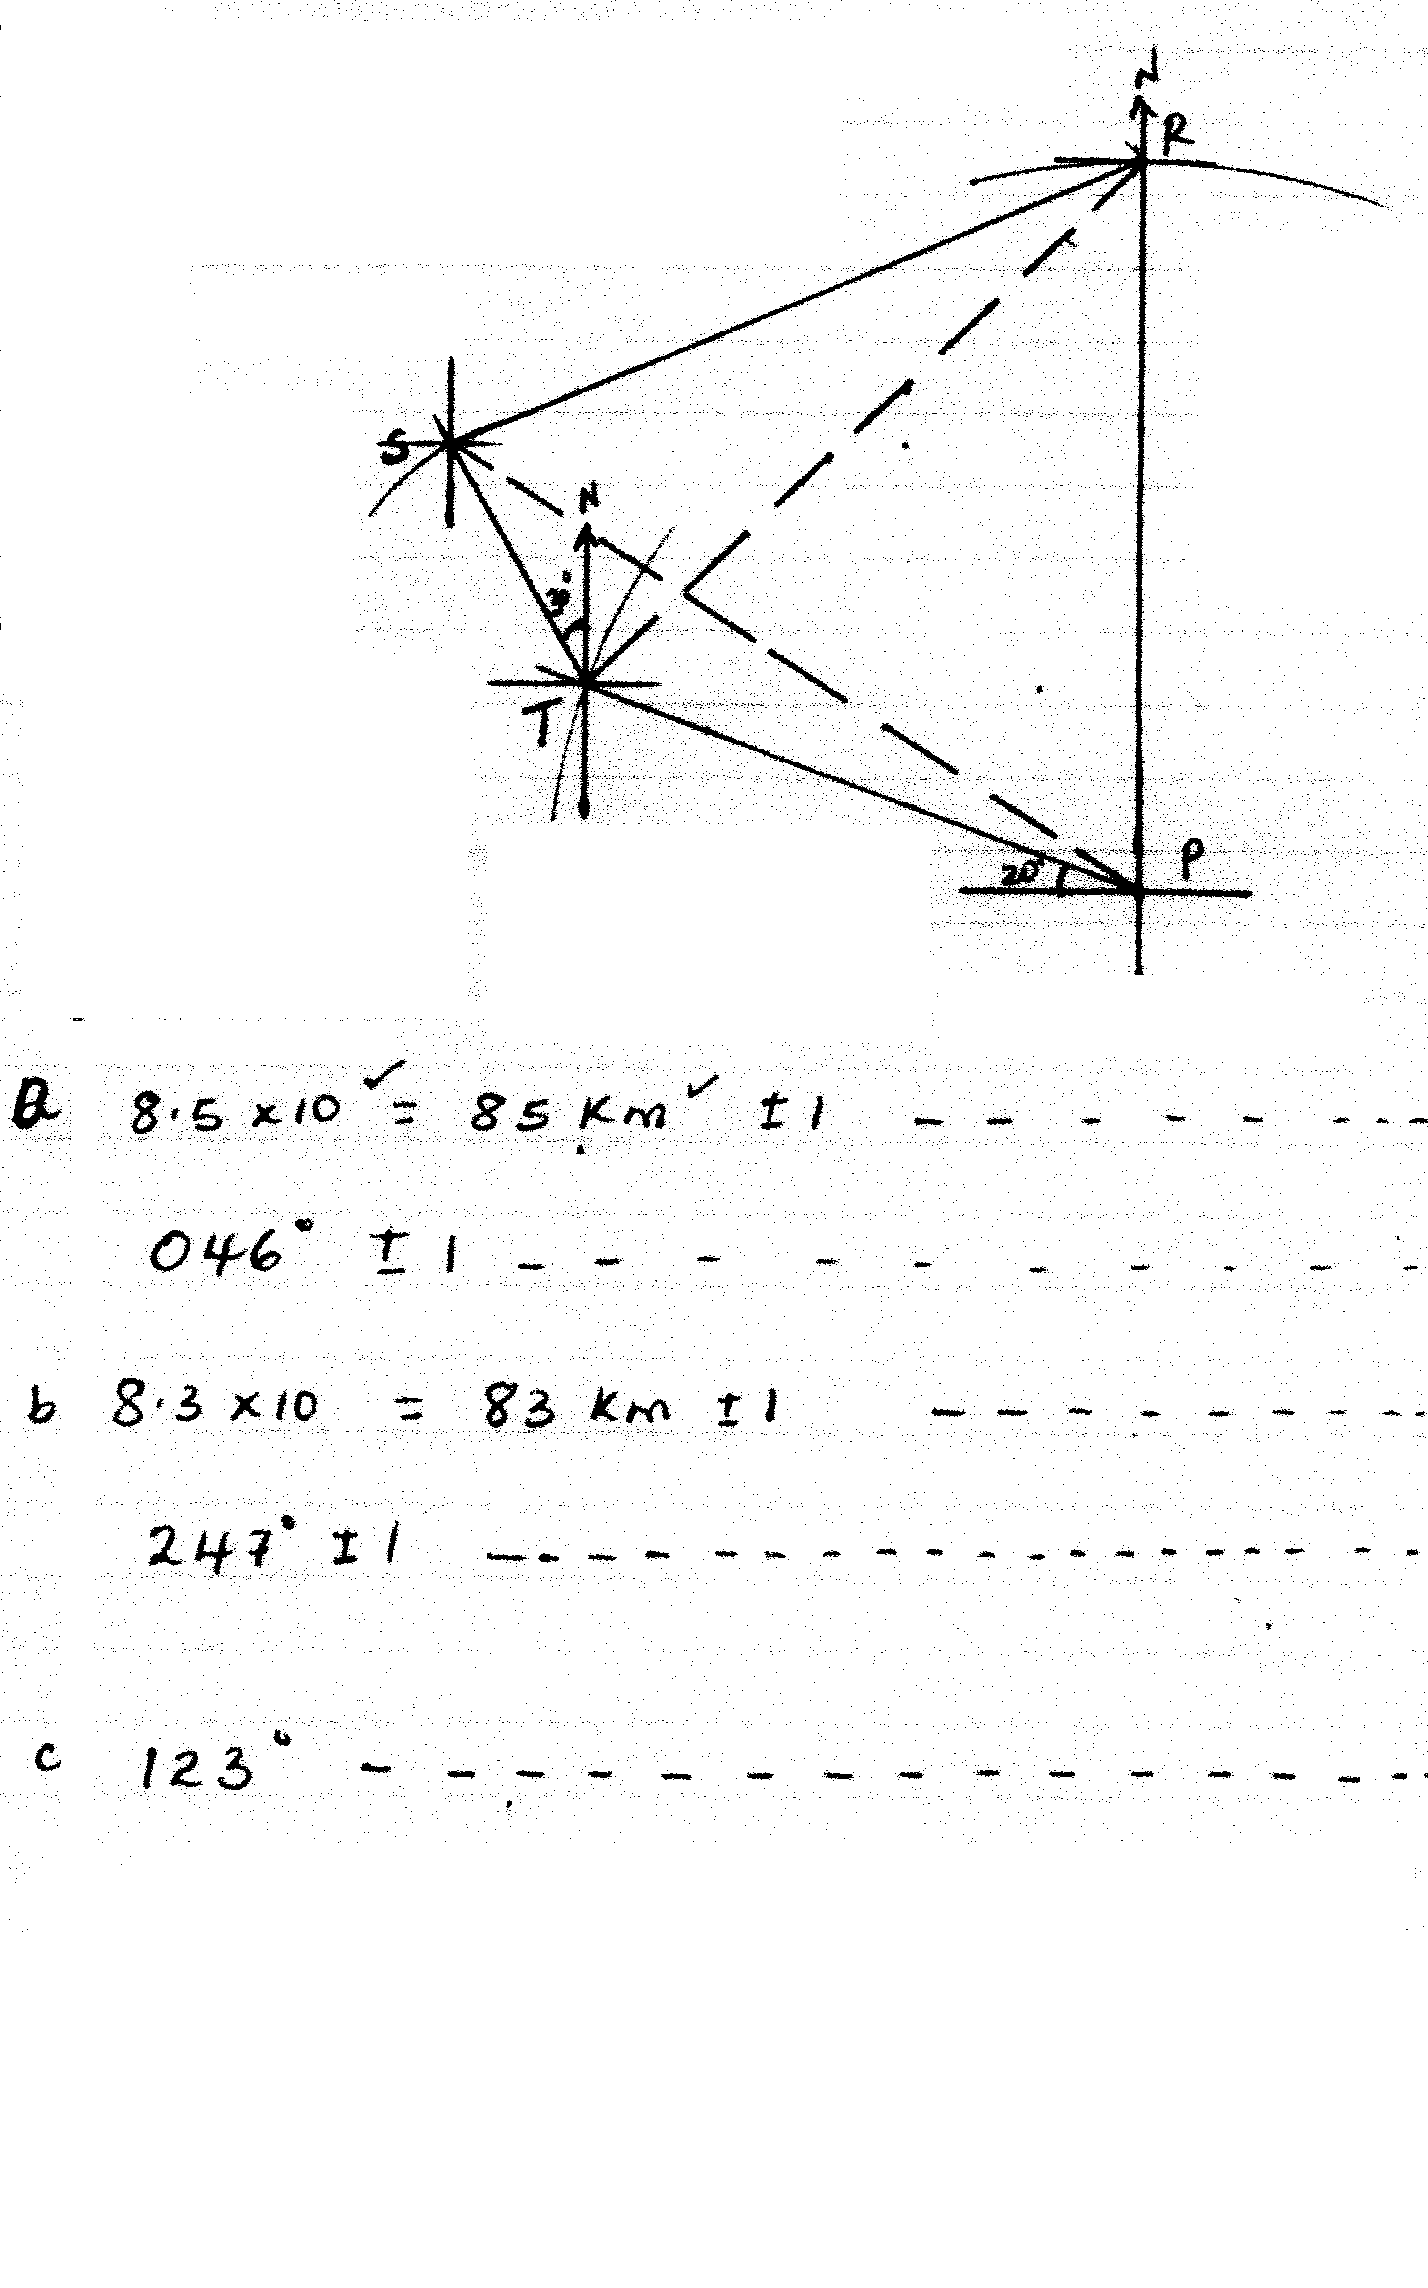 N
R
S
N
30°
T
20°
P
a 8.5 x 10 ✓ = 85 Km ✓ ± 1 - - - - - - - -
046° ± 1 - - - - - - - - - -
b 8.3 x 10 = 83 Km ± 1 - - - - - - - - -
247° ± 1 - - - - - - - - - - - - - - - - -
c 123° - - - - - - - - - - - - - - -